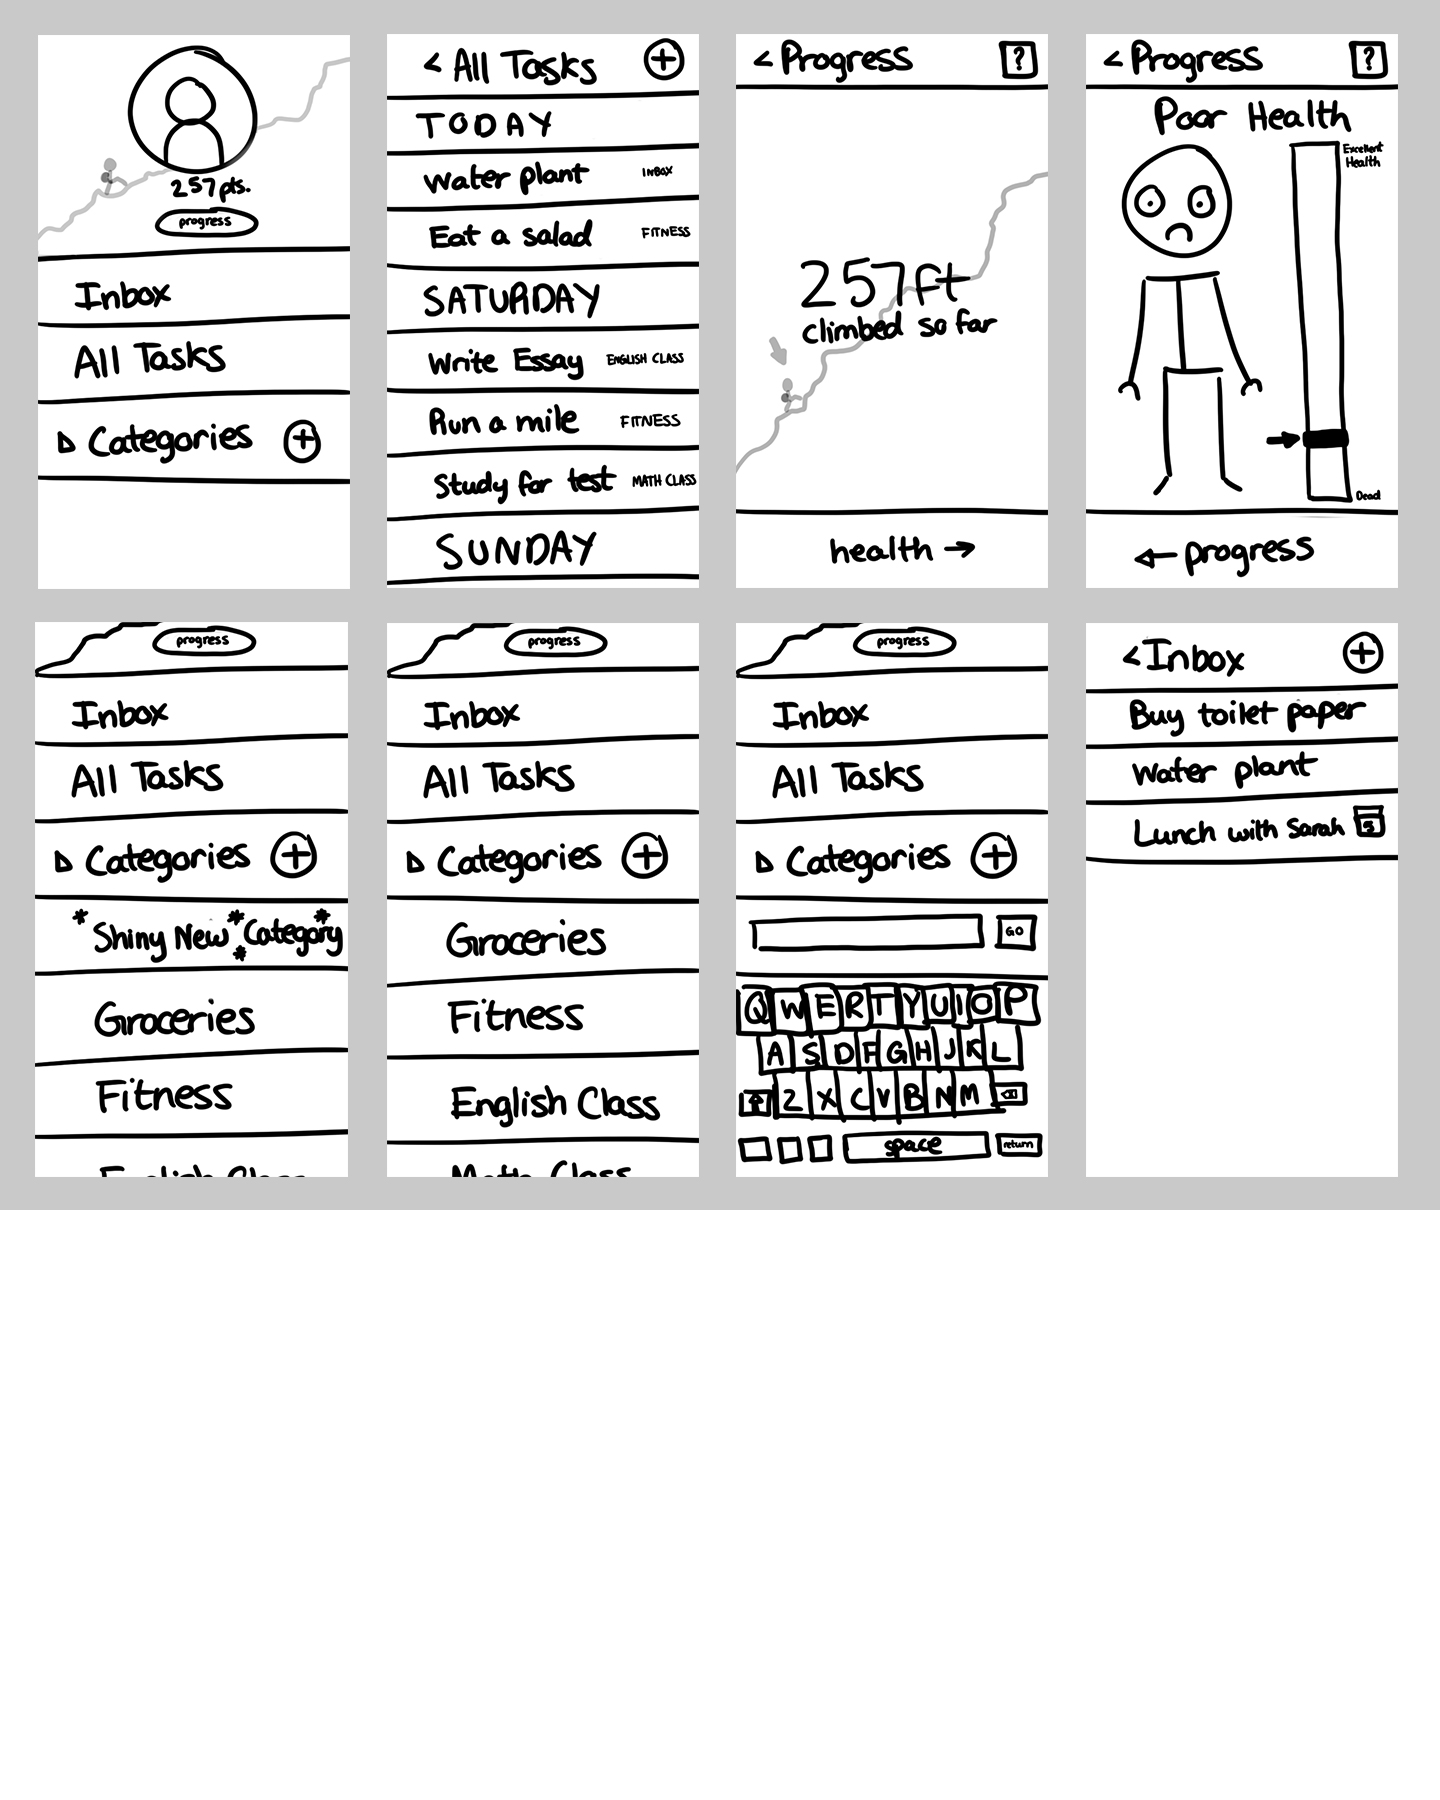 257 pts.
progress
Inbox
All Tasks
Categories +
< All Tasks +
TODAY
Water plant INBOX
Eat a salad FITNESS
SATURDAY
Write Essay ENGLISH CLASS
Run a mile FITNESS
Study for test MATH CLASS
SUNDAY
< Progress ?
257ft
climbed so far
health →
< Progress ?
Poor Health
Excellent
Health
Dead
← progress
progress
Inbox
All Tasks
Categories +
*Shiny New* *Category*
Groceries
Fitness
English Class
progress
Inbox
All Tasks
Categories +
Groceries
Fitness
English Class
Math Class
progress
Inbox
All Tasks
Categories +
GO
Q W E R T Y U I O P
A S D F G H J K L
Z X C V B N M
space return
< Inbox +
Buy toilet paper
Water plant
Lunch with Sarah 5